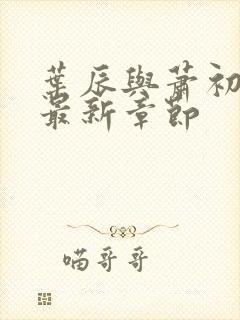 葉辰與蕭初
最新章節
喵哥哥